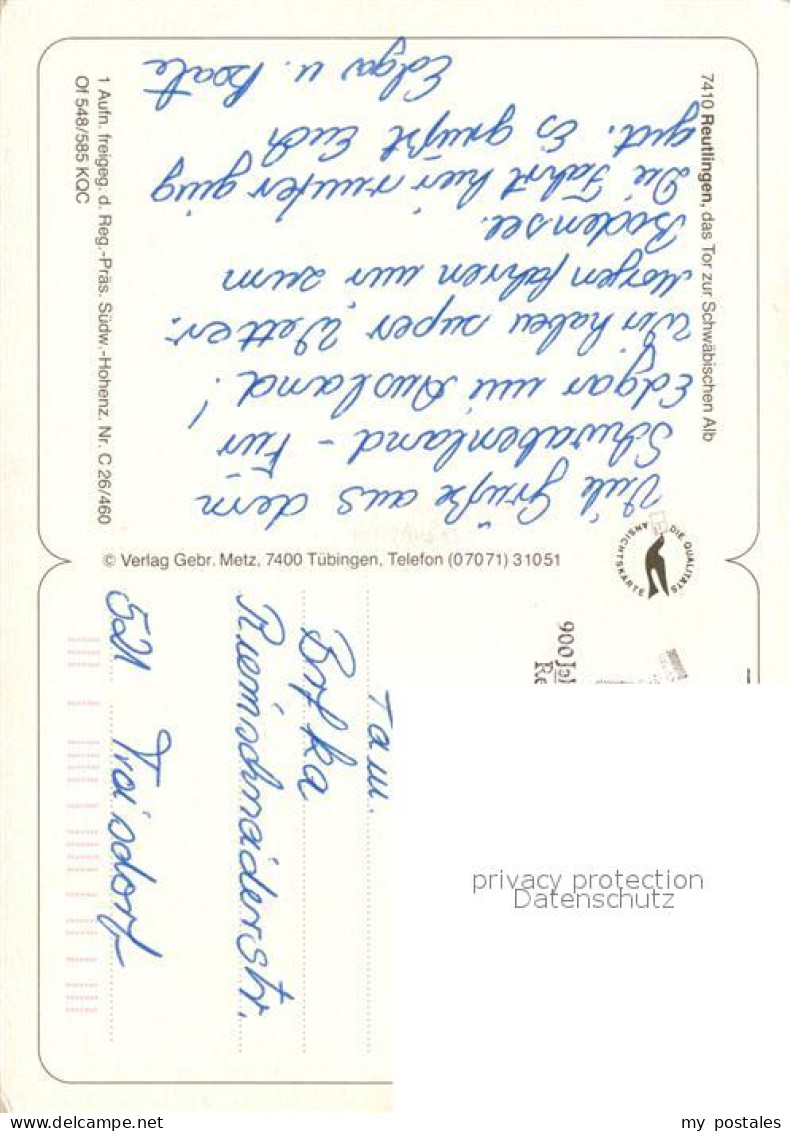 7410 Reutlingen, das Tor zur Schwäbischen Alb
Viele Grüße aus dem
Schwabenland - Für
Edgar nur Ausland!
Wir haben super Wetter.
Morgen fahren wir zum
Bodensee.
Die Fahrt hier runter ging
gut. Es grüßt Euch
Edgar u. Beate
1 Aufn. freigeg. d. Reg.-Präs. Südw.-Hohenz. Nr. C 26/460
Of 548/585 KQC
© Verlag Gebr. Metz, 7400 Tübingen, Telefon (07071) 31051
DIE QUALITÄTS
ANSICHTSKARTE
900 Jah
Re
Fam.
Remschneiderstr.
521 Troisdorf
privacy protection
Datenschutz
my postales